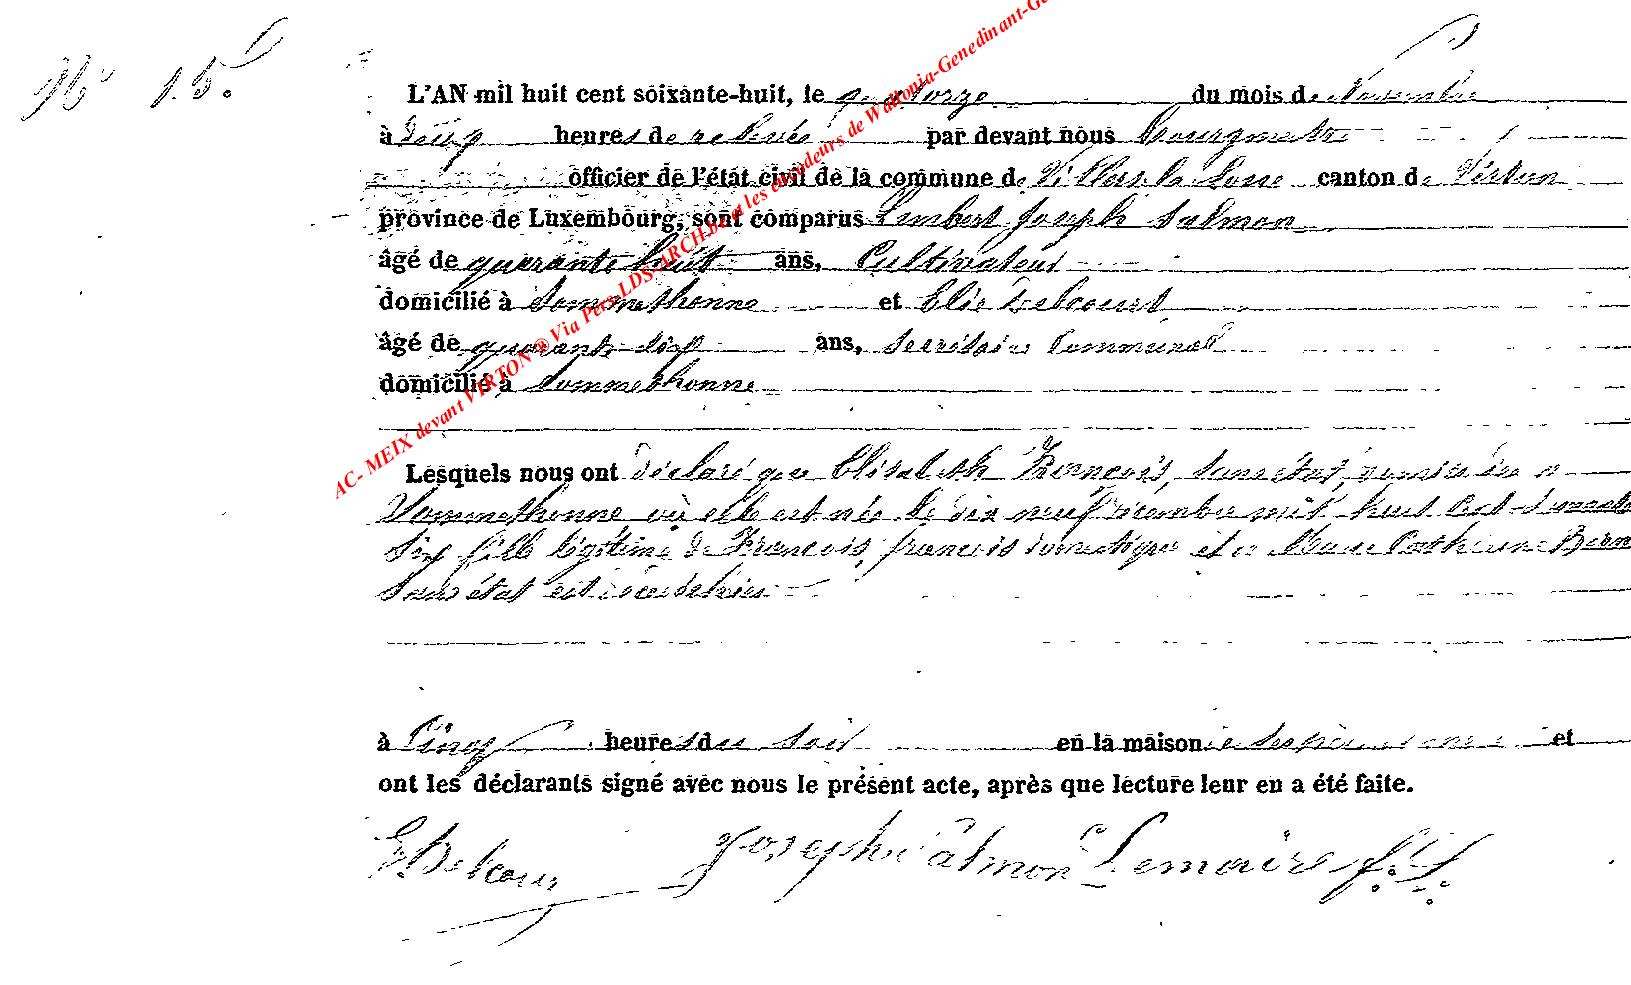 N° 15.
L'AN mil huit cent soixante-huit, le quatorze du mois de Novembre
à heures de relevée par devant nous Bourgmestre
officier de l'état civil de la commune de Villers la Loue canton de Virton
province de Luxembourg, sont comparus Lambert Joseph Salmon
âgé de quarante huit ans, Cultivateur
domicilié à Sommethonne et Elie Delcourt
âgé de quarante ans, secrétaire Communal
domicilié à Sommethonne
Lesquels nous ont déclaré que Elisabeth François, sans état, domiciliée à
Sommethonne où elle est née le dix neuf mil huit cent
six fille légitime de François, françois domestique et de Marie Catherine
sans état est décédée hier
à Cinq heures du soir en la maison et
ont les déclarants signé avec nous le présent acte, après que lecture leur en a été faite.
E. Delcour Joseph Salmon Lemaire
AC- MEIX devant VIRTON @ Via Pers LDS-ARCH.be et les encodeurs de Wallonia-Genedinant-Ge